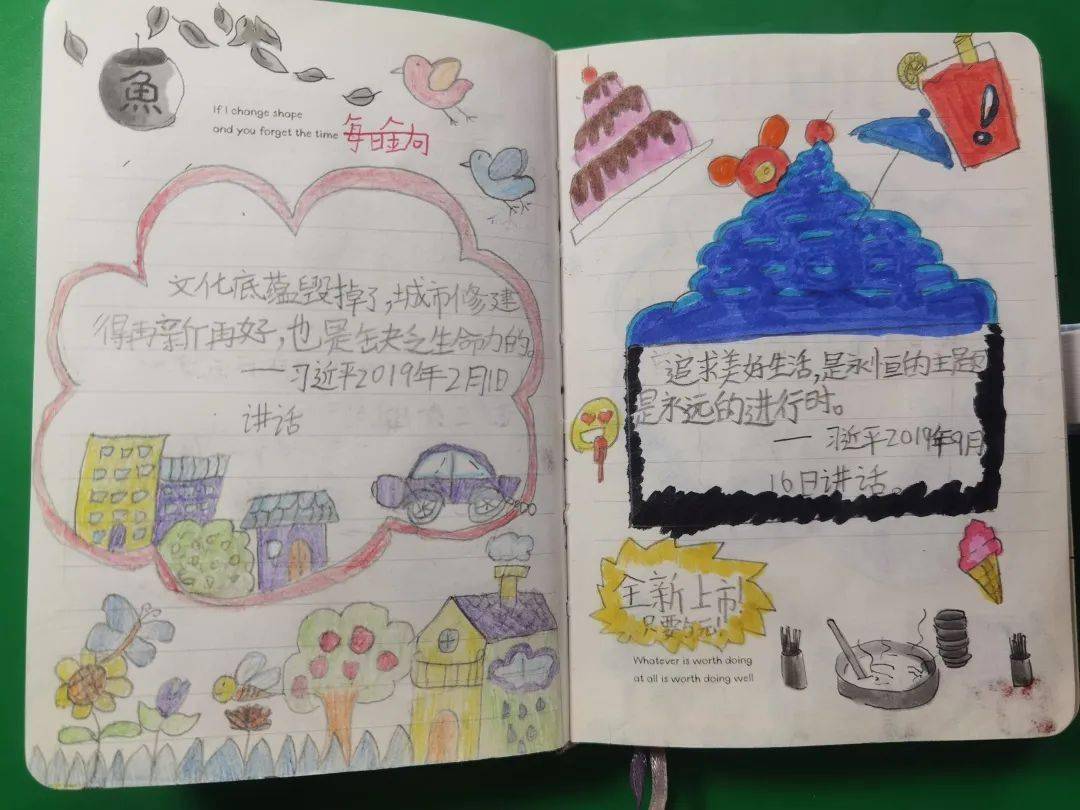 魚
If I change shape
and you forget the time
每日金句
文化底蕴毁掉了,城市修建
得再新再好,也是缺乏生命力的。
——习近平2019年2月1日
讲话
追求美好生活,是永恒的主题
是永远的进行时。
——习近平2019年9月
16日讲话。
全新上市!
Whatever is worth doing
at all is worth doing well